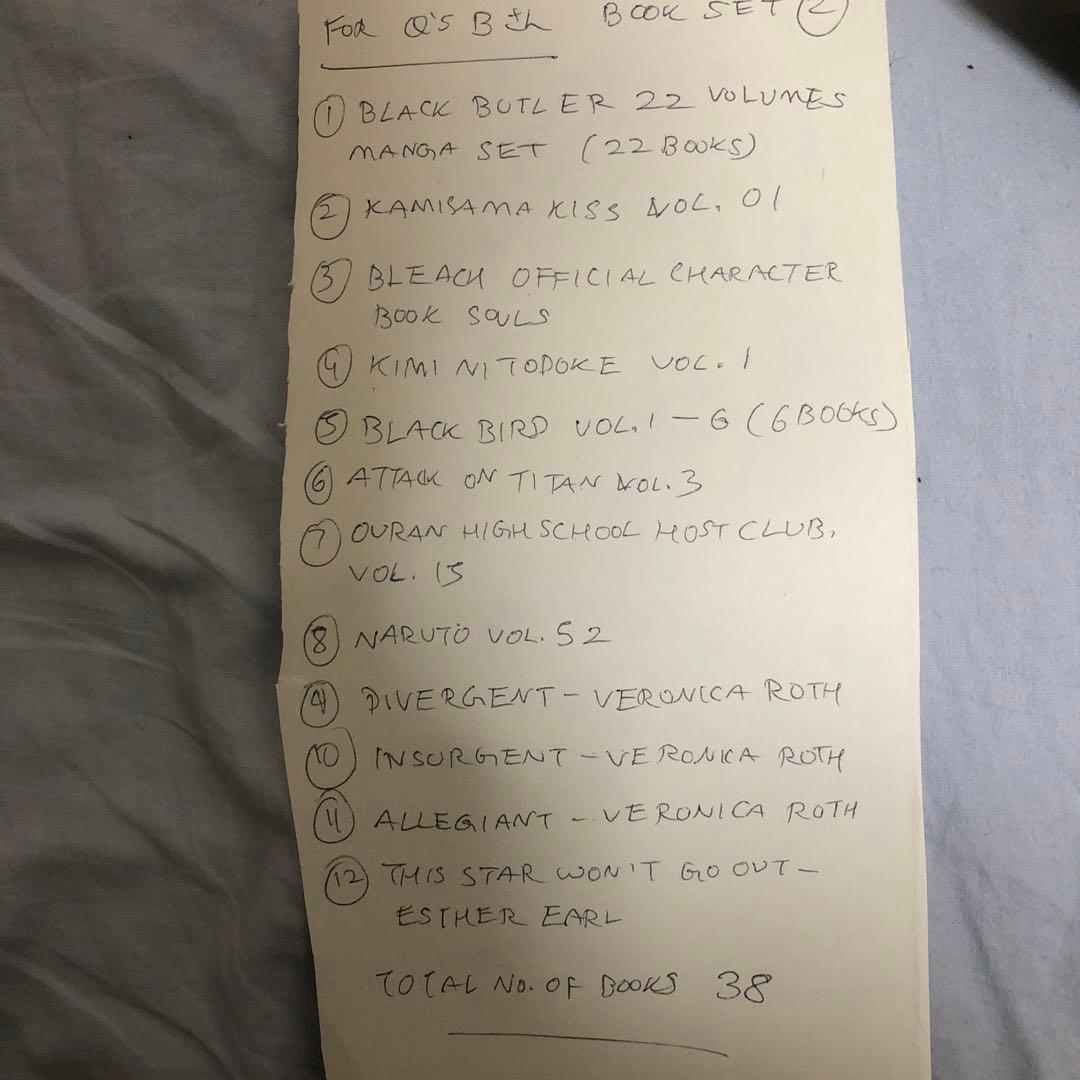 FOR Q'S Bth BOOK SET (2)
(1) BLACK BUTLER 22 VOLUMES
MANGA SET (22 BOOKS)
(2) KAMISAMA KISS VOL. 01
(3) BLEACH OFFICIAL CHARACTER
BOOK SOULS
(4) KIMI NI TODOKE VOL. 1
(5) BLACK BIRD VOL. 1 – 6 (6 BOOKS)
(6) ATTACK ON TITAN VOL. 3
(7) OURAN HIGH SCHOOL HOST CLUB,
VOL. 15
(8) NARUTO VOL. 52
(9) DIVERGENT – VERONICA ROTH
(10) INSURGENT – VERONICA ROTH
(11) ALLEGIANT – VERONICA ROTH
(12) THIS STAR WON'T GO OUT –
ESTHER EARL
TOTAL NO. OF BOOKS 38